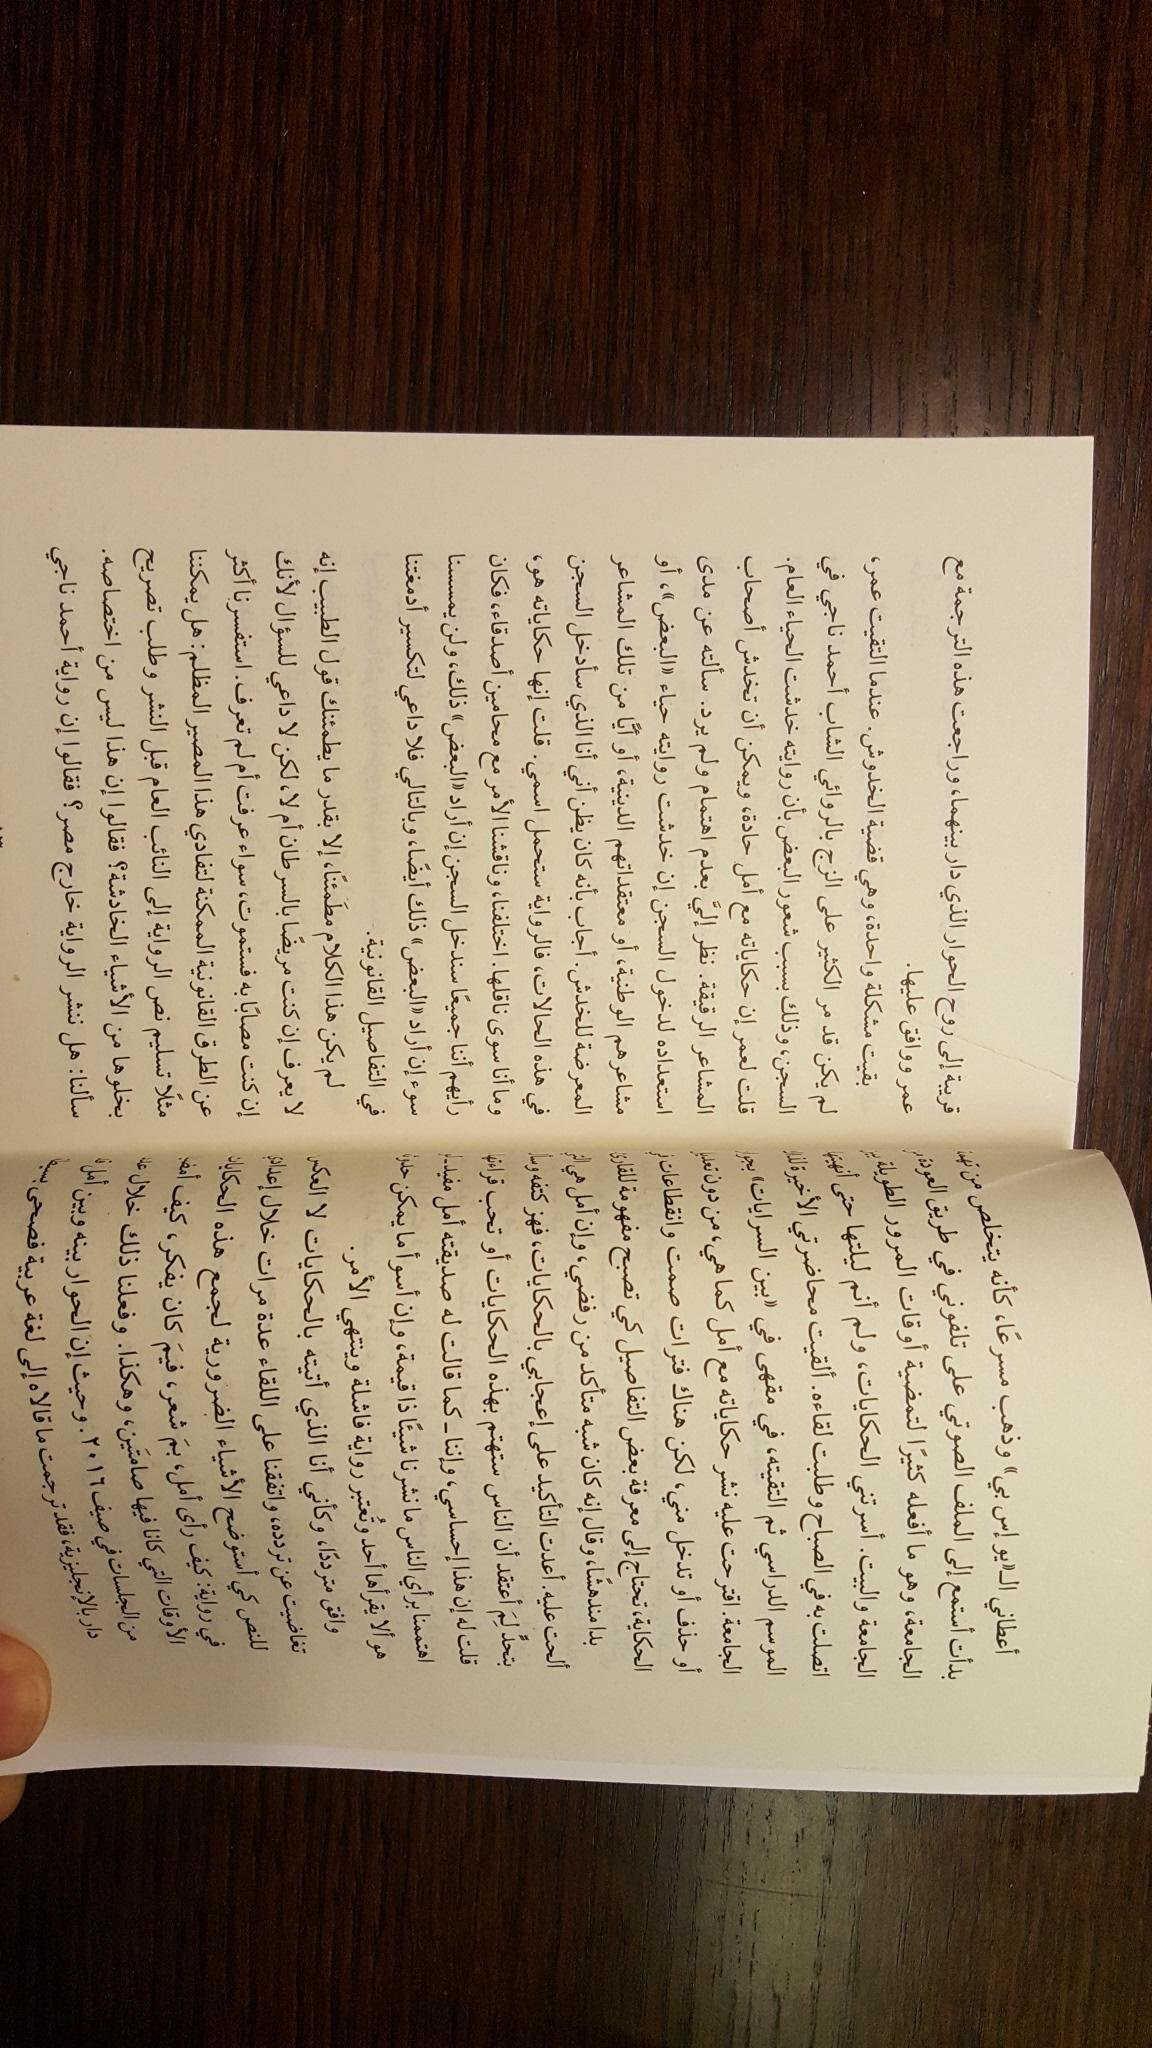 أعطاني الـ«يو إس بي» وذهب مسرعًا، كأنه يتخلص من
بدأت أستمع إلى الملف الصوتي على تلفوني في طريق العودة
الجامعة، وهو ما أفعله كثيرًا لتمضية أوقات المرور الطويلة
الجامعة والبيت. أسرتني الحكايات، ولم أنم ليلتها حتى أنهيتها
اتصلت به في الصباح وطلبت لقاءه. ألقيت محاضرتي الأخيرة
الموسم الدراسي ثم التقيته، في مقهى في «بين السرايات»
الجامعة. اقترحت عليه نشر حكاياته مع أمل كما هي، من دون
أو حذف أو تدخل مني، لكن هناك فترات صمت وانقطاعات
الحكاية، تحتاج إلى معرفة بعض التفاصيل كي تصبح مفهومة للقارئ
بدا مندهشًا، وقال إنه كان شبه متأكد من رفضي، وإن أمل هي
ألحت عليه. أعدت التأكيد على إعجابي بالحكايات، فهز كتفه
بتحدٍّ لِمَ أعتقد أن الناس ستهتم بهذه الحكايات أو تحب قراءتها
قلت له إن هذا إحساسي، وإننا ـ كما قالت له صديقته أمل مفيد ـ
اهتممنا برأي الناس ما نشرنا شيئًا ذا قيمة، وإن أسوأ ما يمكن
هو ألا يقرأها أحد وتُعتبر رواية فاشلة وينتهي الأمر.
وافق مترددًا، وكأني أنا الذي أتيته بالحكايات لا العكس
تغاضيت عن تردده، واتفقنا على اللقاء عدة مرات خلال إعدادي
للنص كي أستوضح الأشياء الضرورية لجمع هذه الحكايات
في رواية: كيف رأى أمل، بمَ شعر، فيمَ كان يفكر، كيف
الأوقات التي كانا فيها صامتَين، وهكذا. وفعلنا ذلك خلال
من الجلسات في صيف ٢٠١٦. وحيث إن الحوار بينه وبين أمل
دار بالإنجليزية، فقد ترجمت ما قالاه إلى لغة عربية فصحى
قريبة إلى روح الحوار الذي دار بينهما، وراجعت هذه الترجمة مع
عمر ووافق عليها.
بقيت مشكلة واحدة، وهي قضية الخدوش. عندما التقيت عمر،
لم يكن قد مر الكثير على الزج بالروائي الشاب أحمد ناجي في
السجن، وذلك بسبب شعور البعض بأن روايته خدشت الحياء العام.
قلت لعمر إن حكاياته مع أمل حادة، ويمكن أن تخدش أصحاب
المشاعر الرقيقة. نظر إليَّ بعدم اهتمام ولم يرد. سألته عن مدى
استعداده لدخول السجن إن خدشت روايته حياء «البعض»، أو
مشاعرهم الوطنية، أو معتقداتهم الدينية، أو أيًّا من تلك المشاعر
المعرضة للخدش. أجاب بأنه كان يظن أني أنا الذي سأدخل السجن
في هذه الحالات، فالرواية ستحمل اسمي. قلت إنها حكاياته هو،
وما أنا سوى ناقلها. اختلفنا، وناقشنا الأمر مع محامين أصدقاء، فكان
رأيهم أننا جميعًا سندخل السجن إن أراد «البعض» ذلك، ولن يمسسنا
سوء إن أراد «البعض» ذلك أيضًا، وبالتالي فلا داعي لتكسير أدمغتنا
في التفاصيل القانونية.
لم يكن هذا الكلام مطَمئنًا، إلا بقدر ما يطمئنك قول الطبيب إنه
لا يعرف إن كنت مريضًا بالسرطان أم لا، لكن لا داعي للسؤال لأنك
إن كنت مصابًا به فستموت، سواء عرفت أم لم تعرف. استفسرنا أكثر
عن الطرق القانونية الممكنة لتفادي هذا المصير المظلم: هل يمكننا
مثلًا تسليم نص الرواية إلى النائب العام قبل النشر وطلب تصريح
بخلوها من الأشياء الخادشة؟ فقالوا إن هذا ليس من اختصاصه.
سألنا: هل ننشر الرواية خارج مصر؟ فقالوا إن رواية أحمد ناجي